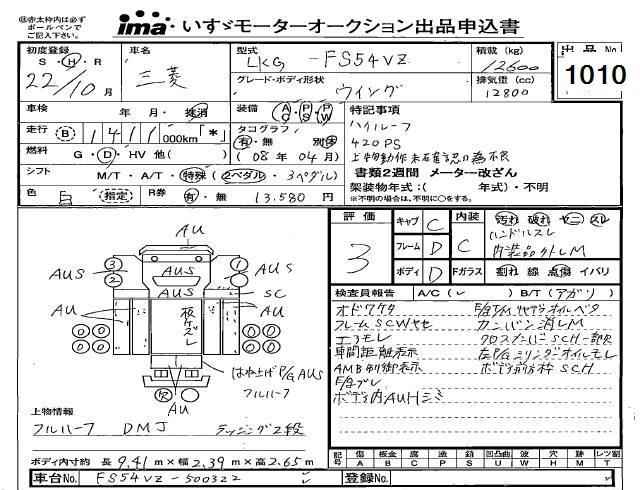 ※赤太枠内は必ず
ボールペンで
ご記入下さい。
ima いすゞモーターオークション出品申込書
出品No
1010
初度登録
S・H・R
22/10月
車名
三菱
型式
LKG-FS54VZ
グレード・ボディ形状
ウイング
積載(kg)
12600
排気量(cc)
12800
車検
年 月・抹消
装備 AC・PS・PW
特記事項
ハイルーフ
420PS
走行 B 1411 000km「*」
タコグラフ
有・無 別体
(08年04月)
燃料 G・D・HV 他( )
書類2週間 メーター改ざん
シフト M/T・A/T・特殊(2ペダル・3ペダル)
架装物年式:( 年式)・不明
※不明の場合は、不明に○をする。
色 白 指定
R券 有・無 13,580円
評価
3
キャブ C
フレーム D
ボディ D
内装
C
Fガラス
汚れ 破れ ヤニ スレ
ハンドルスレ
内装品外レM
割れ 線 点傷 イバリ
検査員報告 A/C(レ) B/T(アガリ)
オドワケタ
フレームSCWヤセ
エアモレ
車間距離表示
AMB制御表示
ボデー内AUHミミ
カンバン消しM
クロスメンバーSCH一部R
AU
AUS
AUS
AUS
AUS
SC
AU
AU
3
2
1
板ズレ
はね上げP/G AUS
フルハーフ
AU
上物情報
フルハーフ DMJ
ラッシング2段
ボディ内寸約 長 9.41m×幅 2.39m×高 2.65m
車台No. FS54VZ-500322
登録No.
記号
傷 A
凹 B
腐 C
塗 P
錆 S
凹凸曲 U
波 W
穴 H
跡 M
レツ割 T